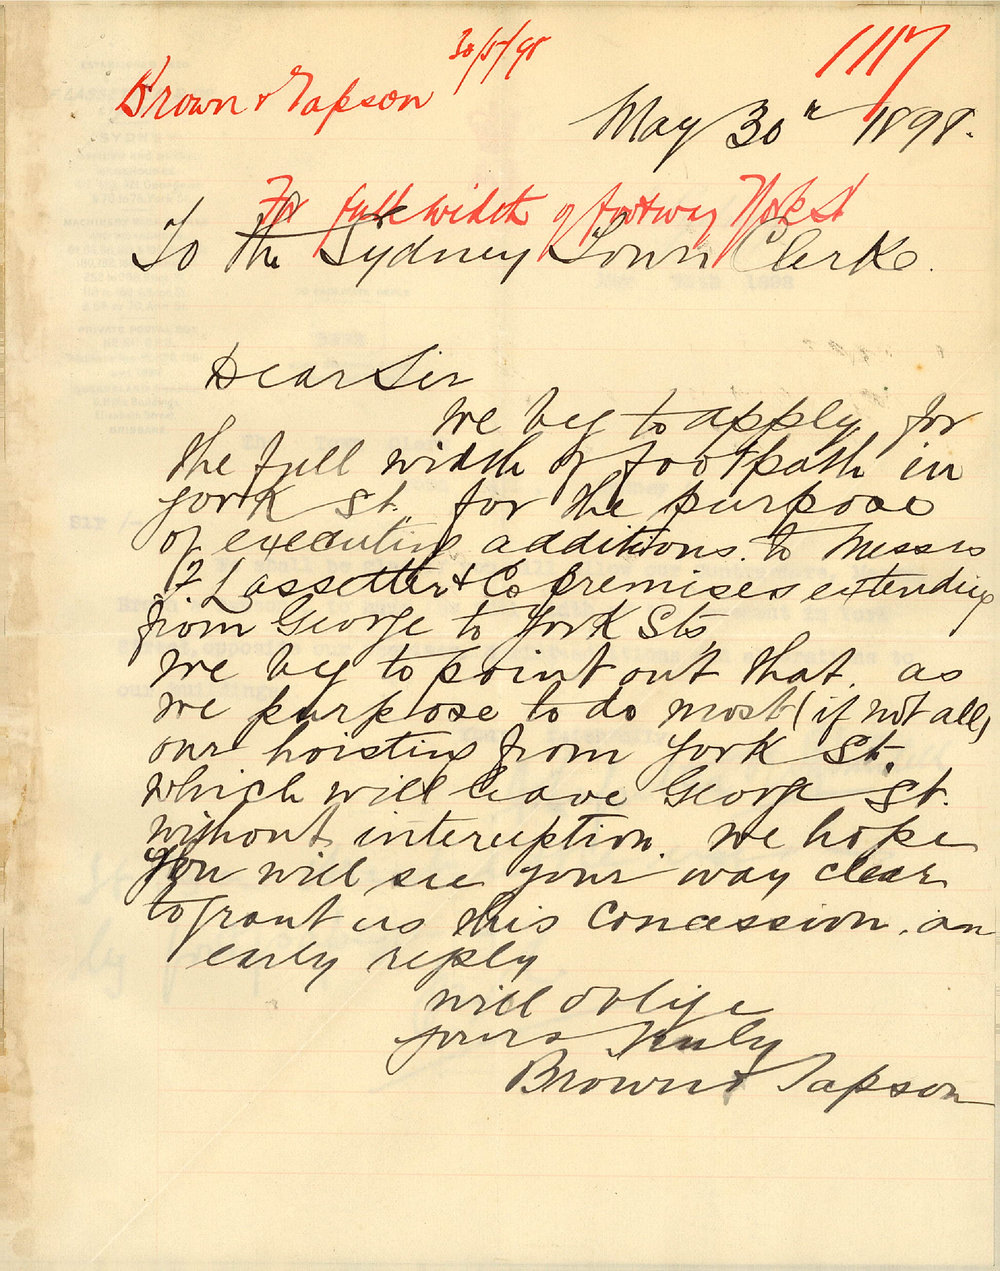 30/5/98
1117
Brown & Tapson
May 30th 1898.
For full width of footway York St
To The Sydney Town Clerk.
Dear Sir
We beg to apply for
the full width of footpath in
York St. for the purpose
of executing additions. to Messrs
F. Lassetter & Co premises extending
from George to York Sts,
We beg to point out that, as
we purpose to do most (if not all)
our hoisting from York St.
which will leave George St.
without interuption. We hope
you will see your way clear
to grant us this concession. an
early reply
will oblige
yours truly
Brown & Tapson